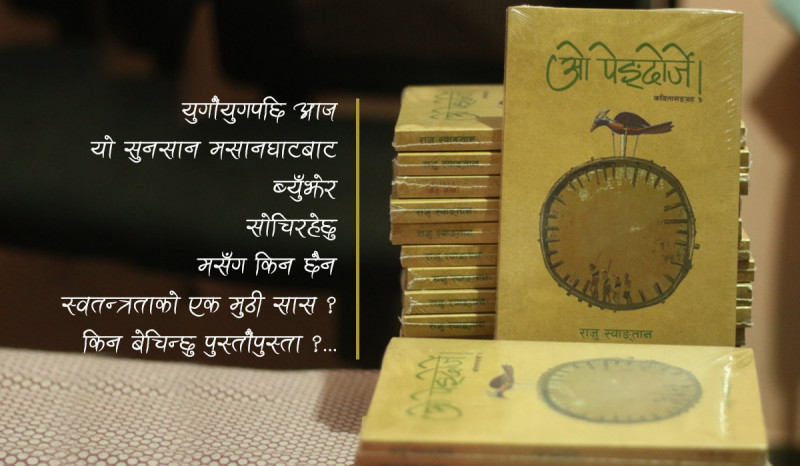 युगौंयुगपछि आज
यो सुनसान मसानघाटबाट
ब्युँझेर
सोचिरहेछु
मसँग किन छैन
स्वतन्त्रताको एक मुठी सास ?
किन बेचिन्छु पुस्तौंपुस्ता ?...
ओ पेङ्दोर्जे।
कवितासङ्ग्रह
राजु स्याङ्तान
ओ पेङ्दोर्जे।
राजु स्याङ्तान
राजु स्याङ्तान
राजु स्याङ्तान
ओ पेङ्दोर्जे।